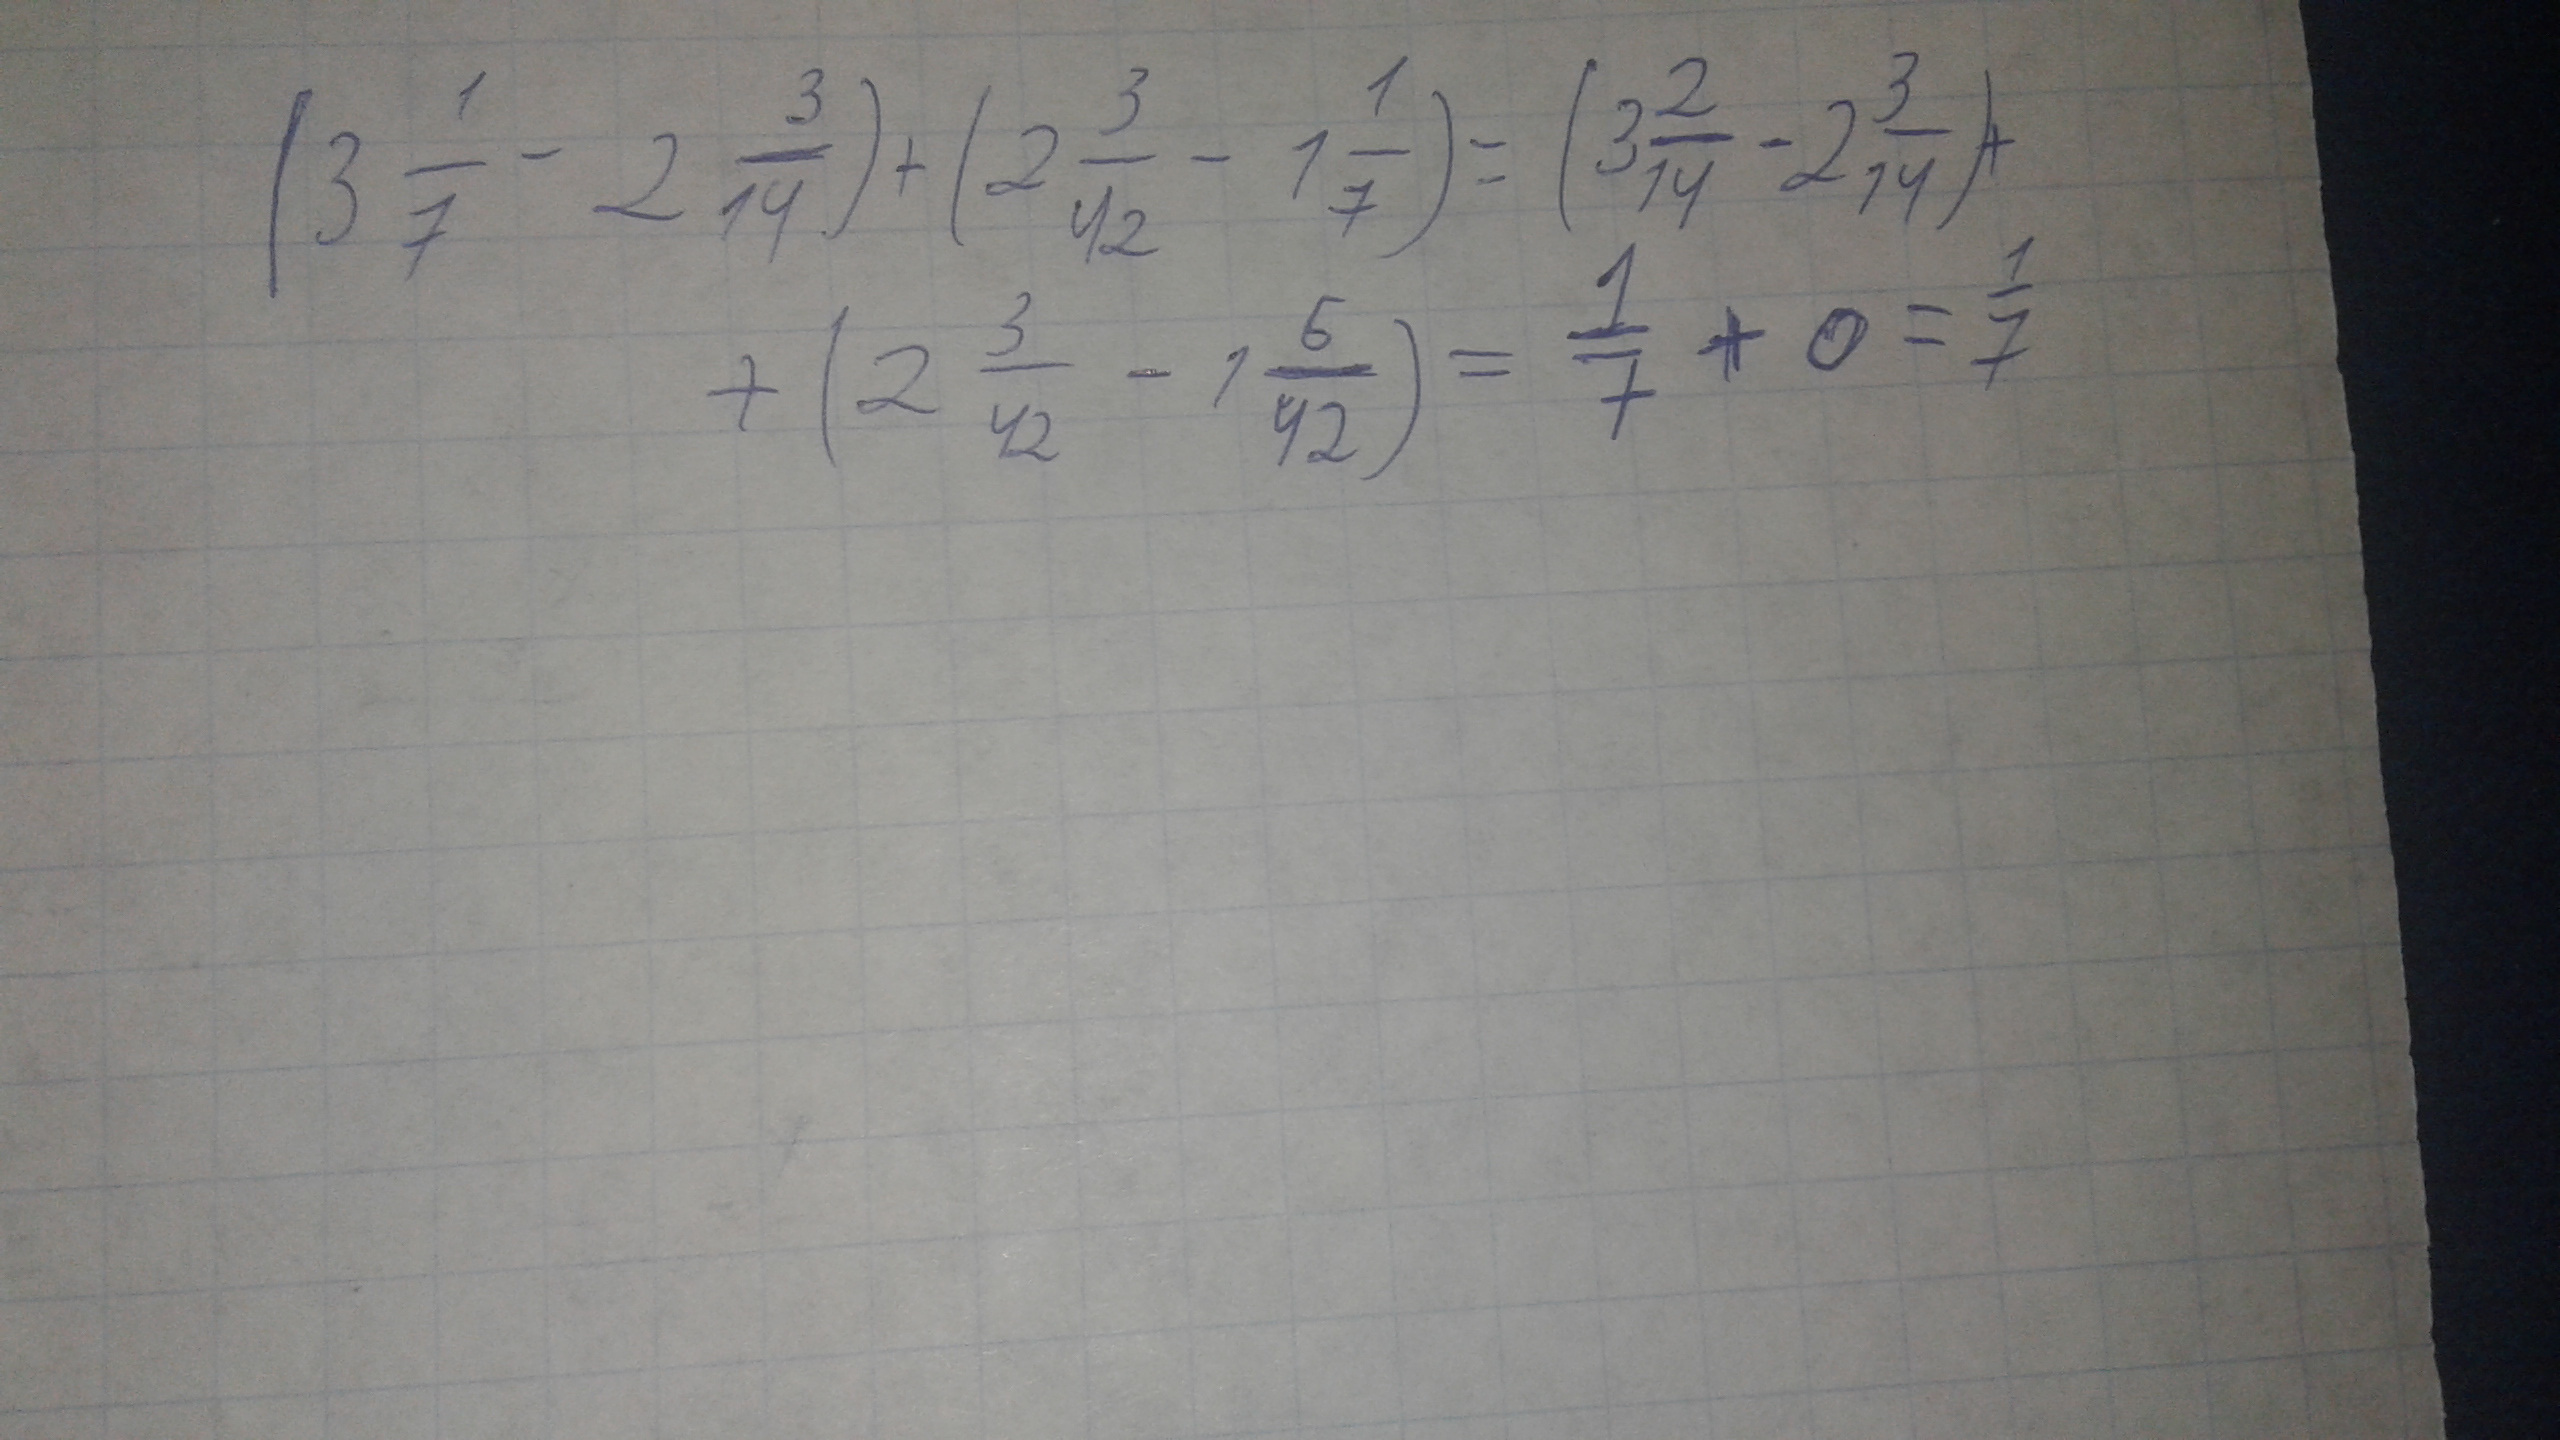 (3 1/7 - 2 3/14) + (2 3/42 - 1 1/7) = (3 2/14 - 2 3/14) +
+ (2 3/42 - 1 6/42) = 1/7 + 0 = 1/7